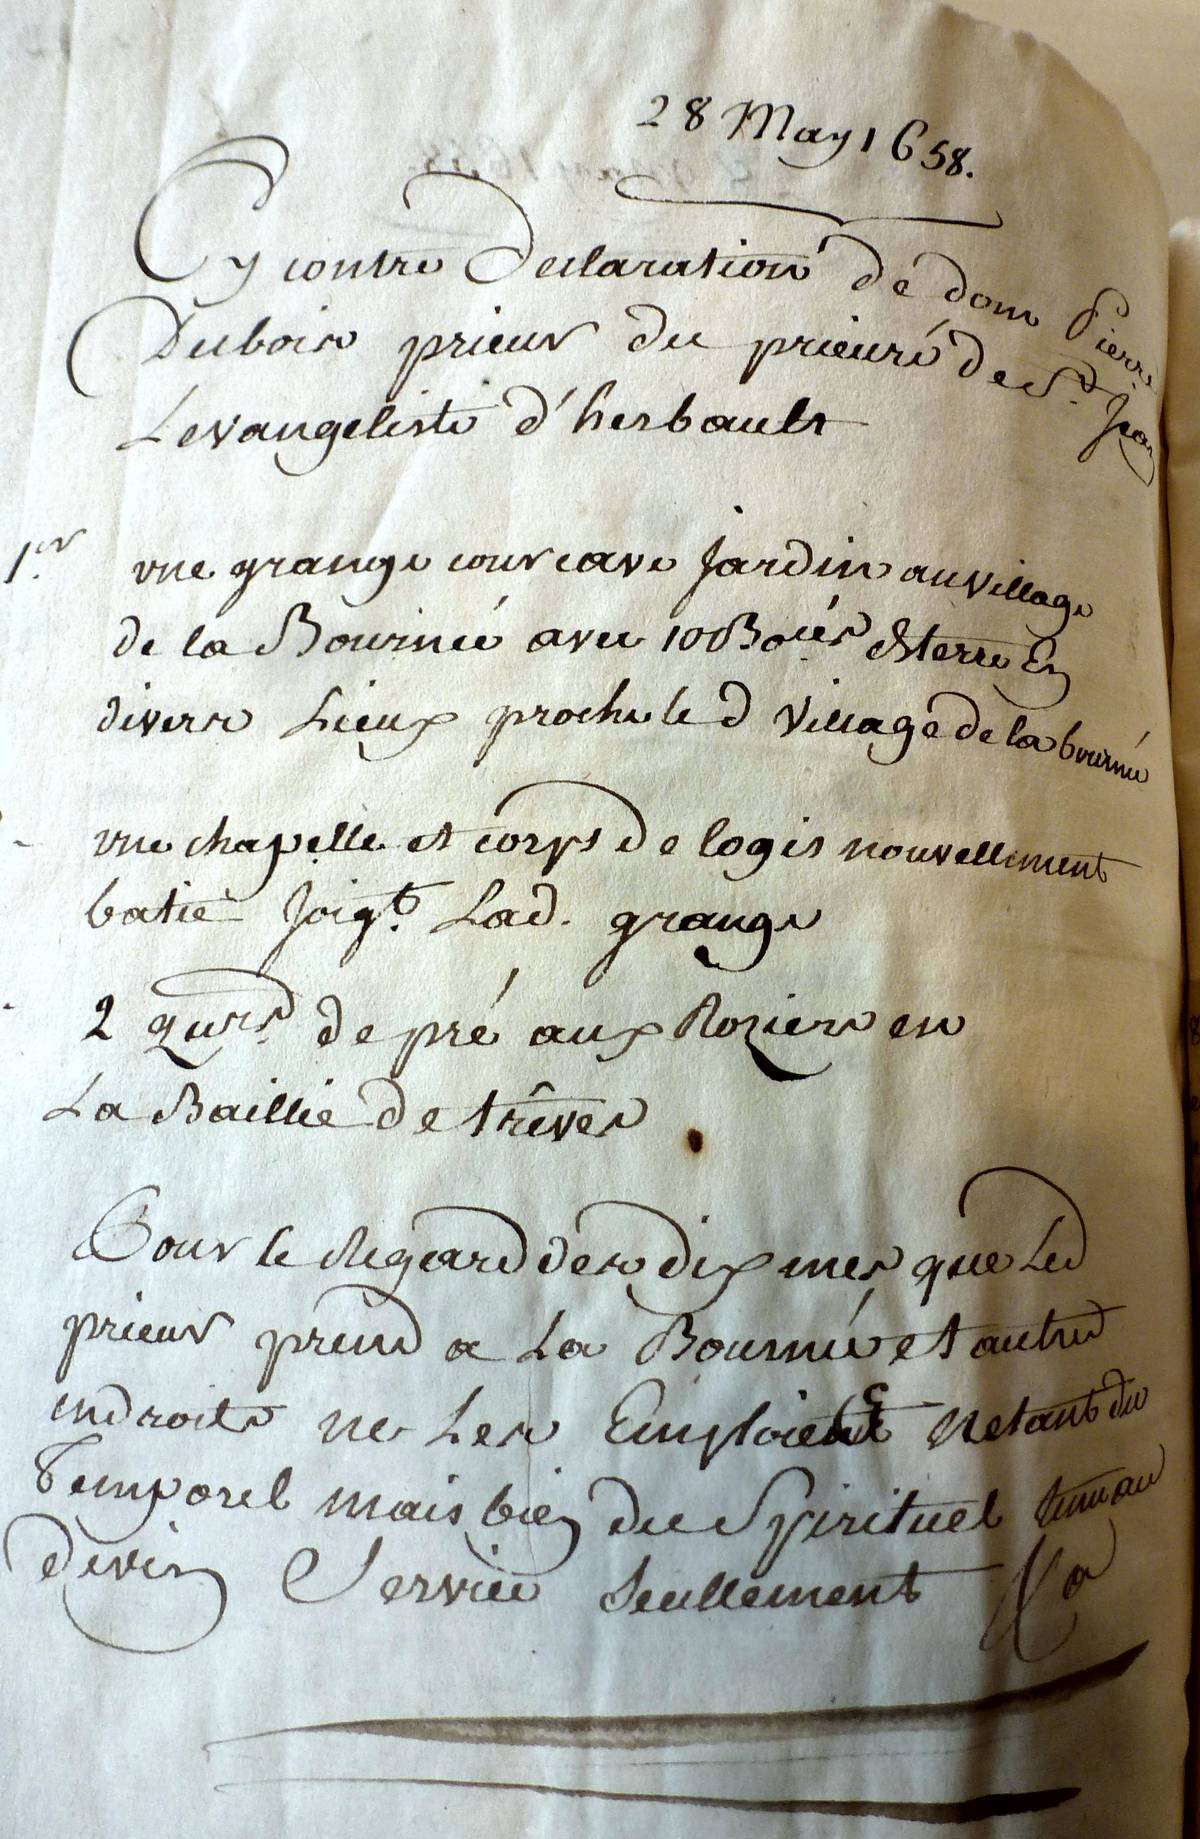 28 May 1658.
Cy contre Declaration de dom Pierre
Dubois prieur du prieuré de St. Jean
Levangeliste d'herbault
1.er vne grange cour cave Jardin au village
de la Bournée avec 10 Boiées de terre En
divers Lieux proche led village de la bournée
vne chapelle et corps de logis nouvellement
batie Joigt. Lad. grange
2 qurs. de pré aux Roziers en
La Baillie de trêves
Pour le Regard des dixmes que Led
prieur prend a La Bournée et autres
endroits ne Les Emploient Netant du
Temporel mais bien du Spirituel tenu au
divin Service seullement